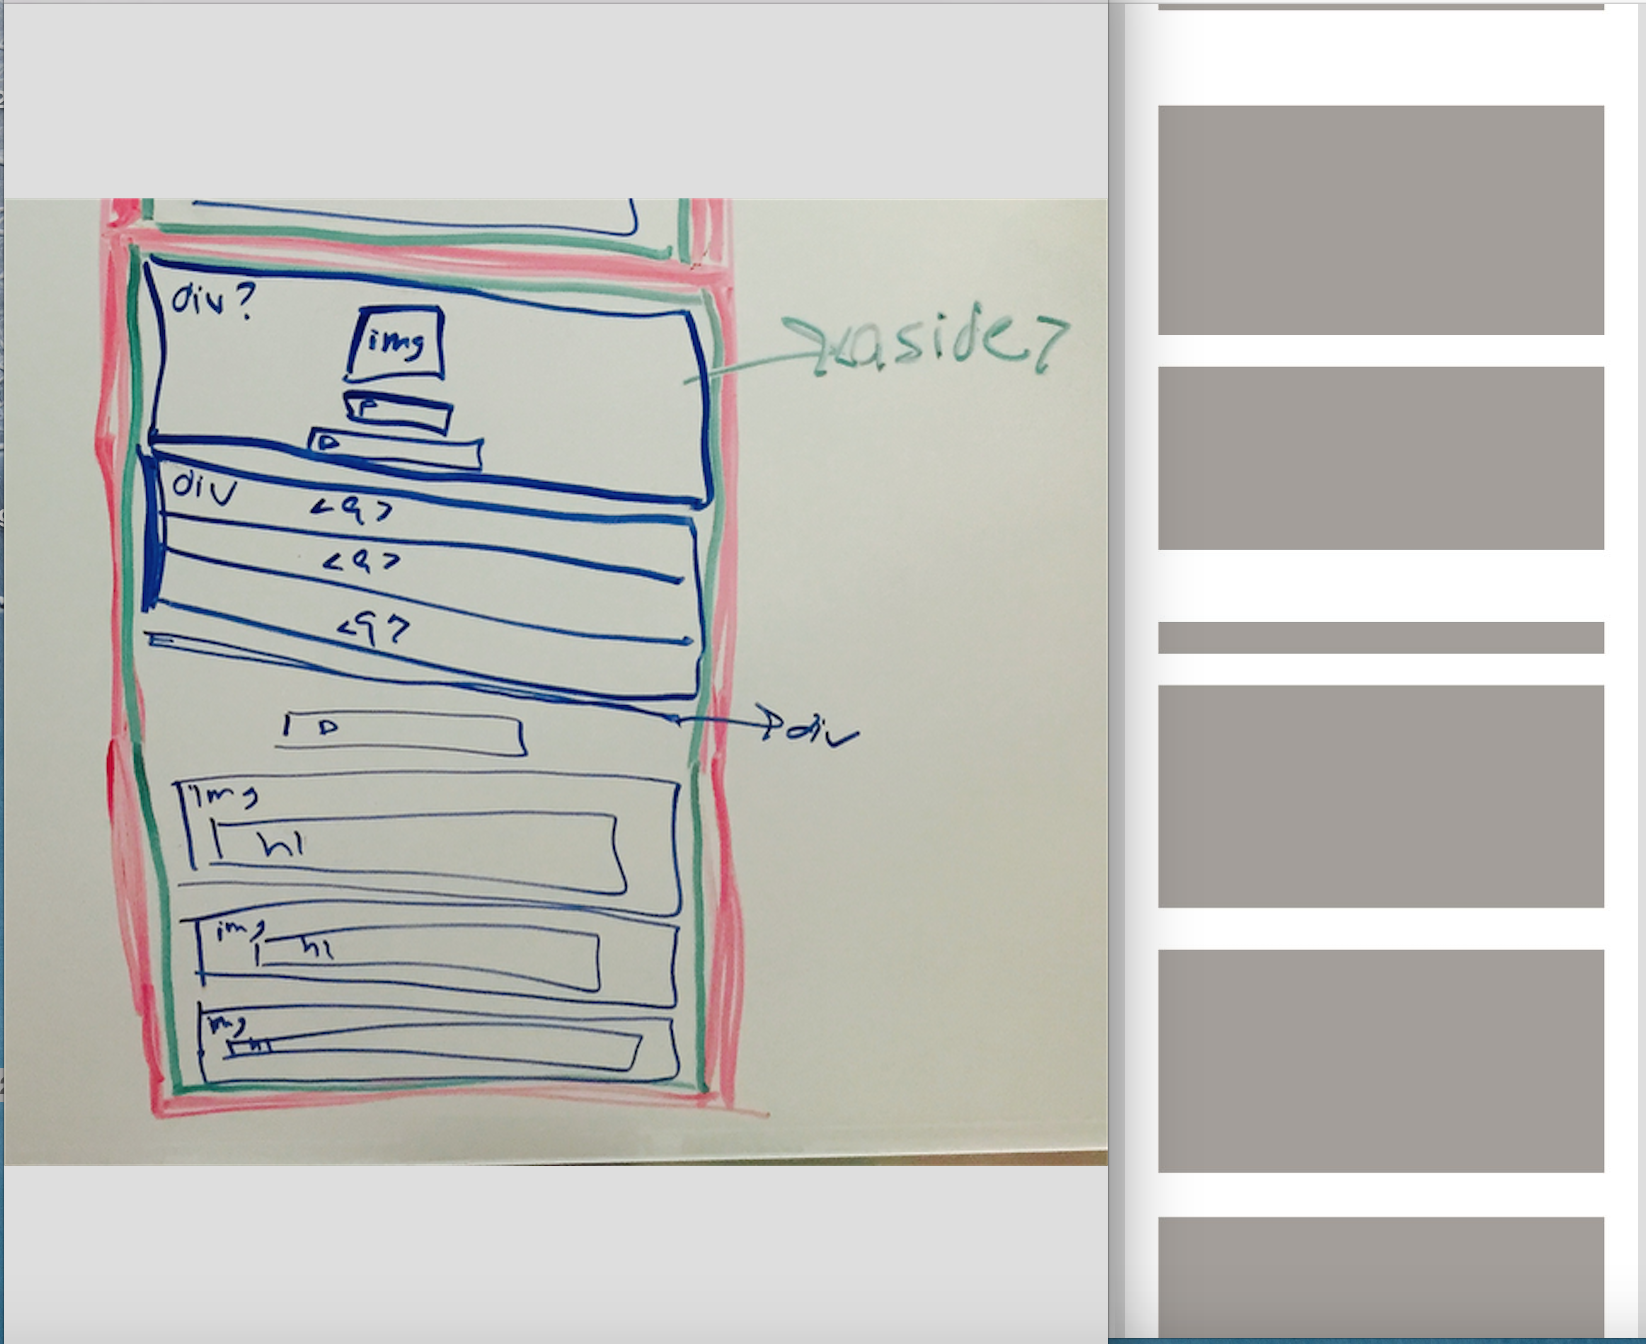 div?
img
<aside>
P
P
div
<a>
<a>
<a>
div
P
img
h1
img
h1
img
h1